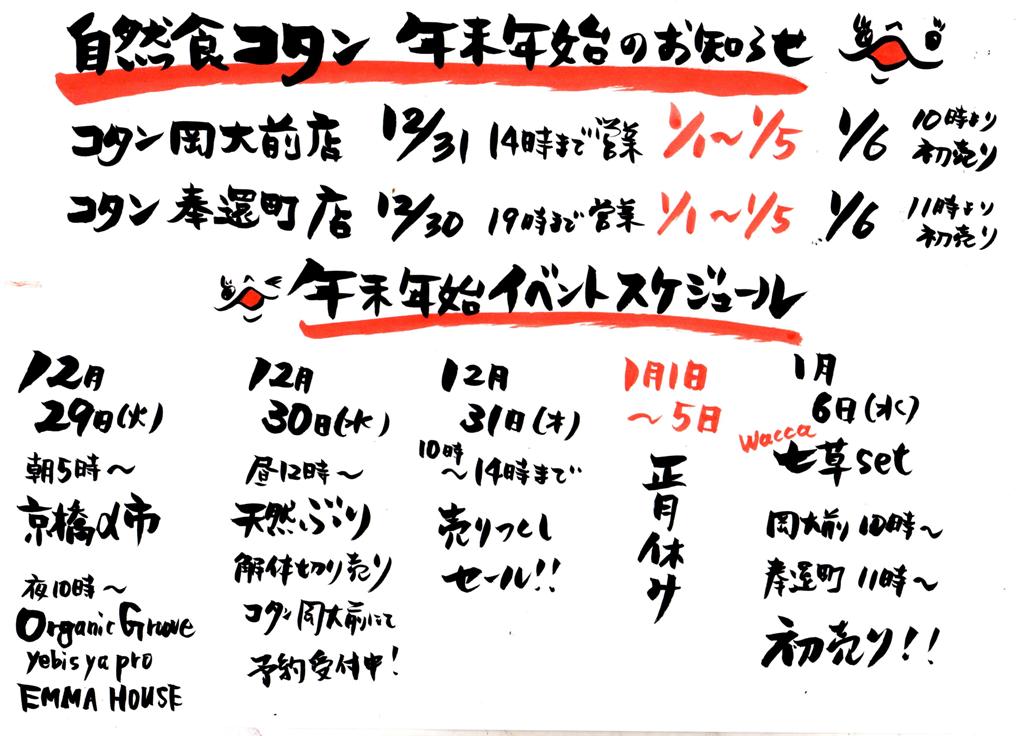 自然食コタン 年末年始のお知らせ
コタン岡大前店 12/31 14時まで営業 1/1～1/5 1/6 10時より初売り
コタン奉還町店 12/30 19時まで営業 1/1～1/5 1/6 11時より初売り
年末年始イベントスケジュール
12月
29日(火)
朝5時～
京橋α市
夜10時～
Organic Groove
yebisya pro
EMMA HOUSE
12月
30日(水)
昼12時～
天然ぶり
解体切り売り
コタン岡大前にて
予約受付中!
12月
31日(木)
10時
～14時まで
売りつくし
セール!!
1月1日
～5日
正月休み
1月
6日(水)
Wacca
七草set
岡大前10時～
奉還町11時～
初売り!!